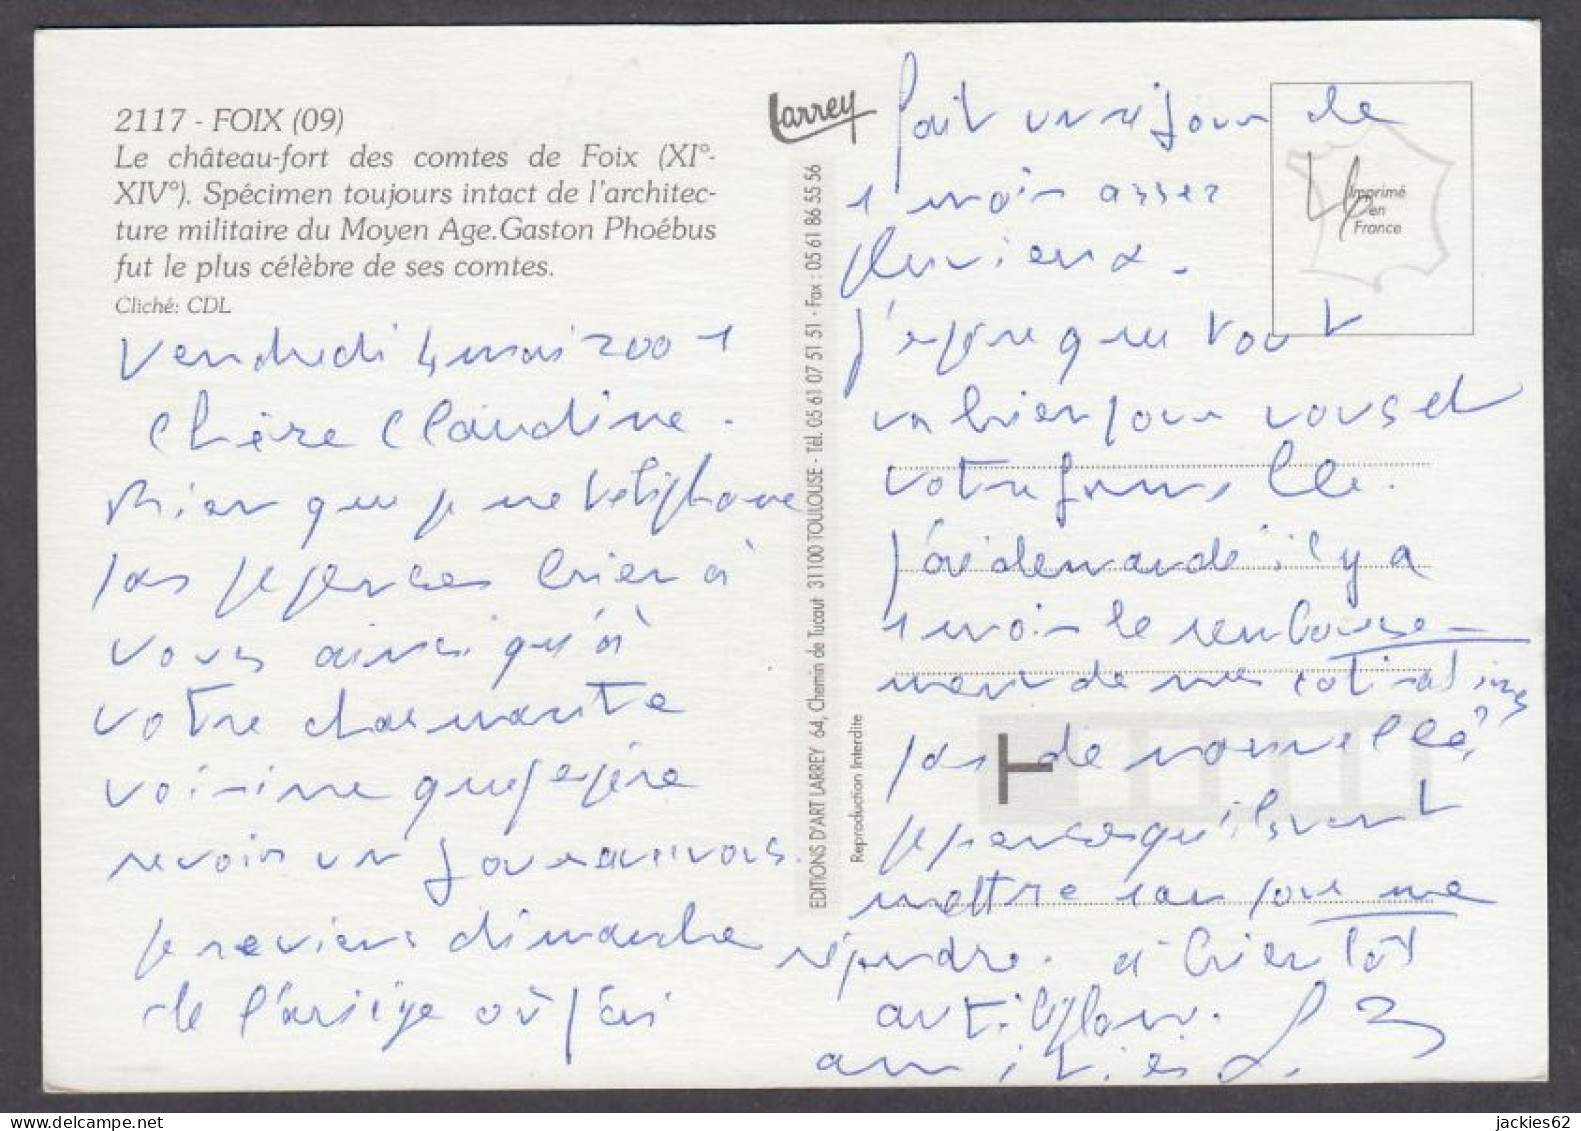 2117 - FOIX (09)
Le château-fort des comtes de Foix (XI°-
XIV°). Spécimen toujours intact de l'architec-
ture militaire du Moyen Age.Gaston Phoébus
fut le plus célèbre de ses comtes.
Cliché: CDL
Vendredi 4 mai 2001
Chère Claudine.
Bien que je ne téléphone
pas je pense bien à
vous ainsi qu'à
votre charmante
voisine que j'espère
revoir un jour avec vous.
je reviens dimanche
de l'ariège où j'ai
Larrey
EDITIONS D'ART LARREY 64, Chemin de Tucaut 31100 TOULOUSE - Tél. 05 61 07 51 51 - Fax : 05 61 86 55 56
Reproduction Interdite
Imprimé
en
France
fait un séjour de
1 mois assez
pluvieux.
J'espère que tout
va bien pour vous et
votre famille.
j'ai demandé il y a
1 mois le rembourse-
ment de mes cotisations
pas de nouvelles
je pense qu'ils vont
mettre 1 an pour me
répondre. à bientôt
au téléphone.
amitiés.
T
jackies62